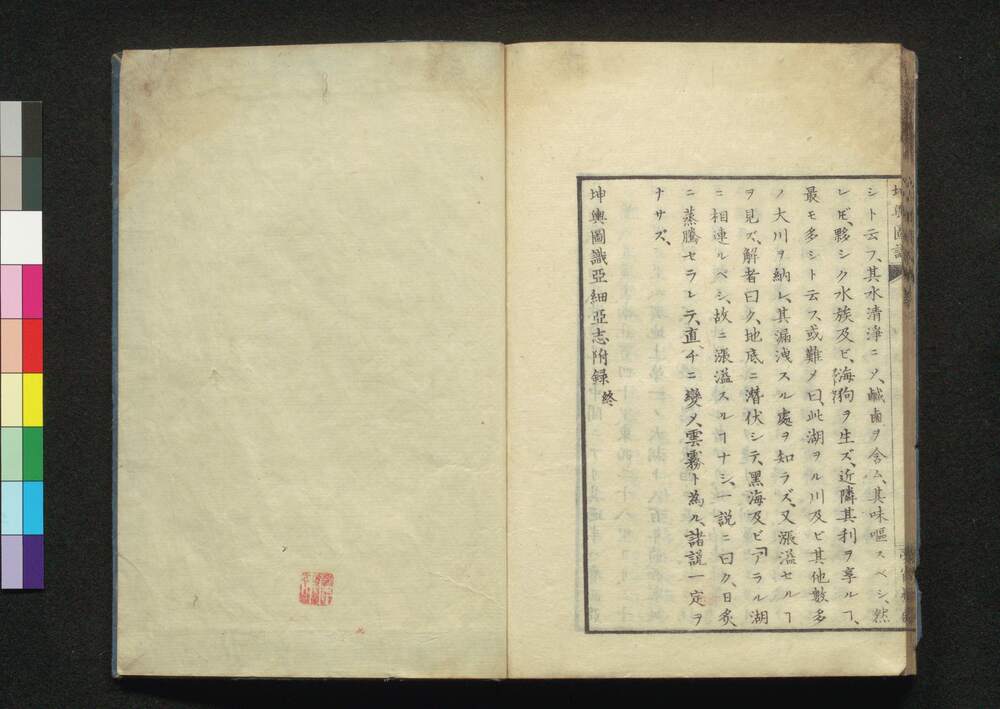 坤輿圖識
シト云フ、其水清淨ニㄨ、鹹鹵ヲ含ム、其味嘔スベシ、然
レ𪜈、夥シク水族及ビ、海狗ヲ生ズ、近隣其利ヲ享ルヿ、
最モ多シト云フ、或難メ曰、此湖ヲル川及ビ其他數多
ノ大川ヲ納レ、其漏洩スル處ヲ知ラズ、又漲溢セルヿ
ヲ見ズ、解者曰ク、地底ニ潜伏シテ、黑海及ビアラル湖
ニ相連ルベシ、故ニ漲溢スルヿナシ、一說ニ曰ク、日炙
ニ蒸騰セラレテ、直チニ變メ、雲霧ト為ル、諸說一定ヲ
ナサズ、
坤輿圖識亞細亞志附録終